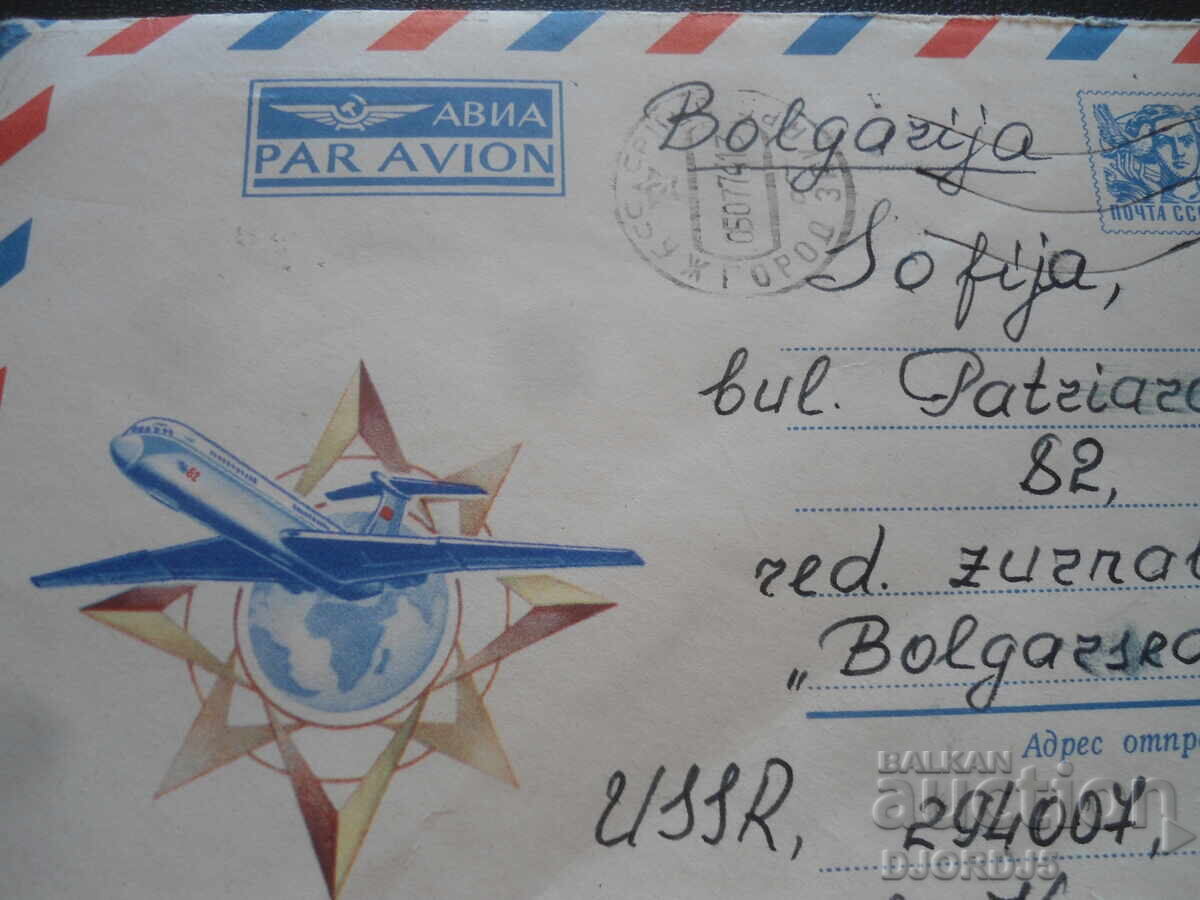 АВИА
PAR AVION
Bolgarija
ПОЧТА СС
050774
УЖГОРОД
Sofija,
bul. Patriarc
82,
62
red. zurnal
„Bolgarsco
Адрес отпр
USSR, 294007,
BALKAN
auction
DJORDJ5